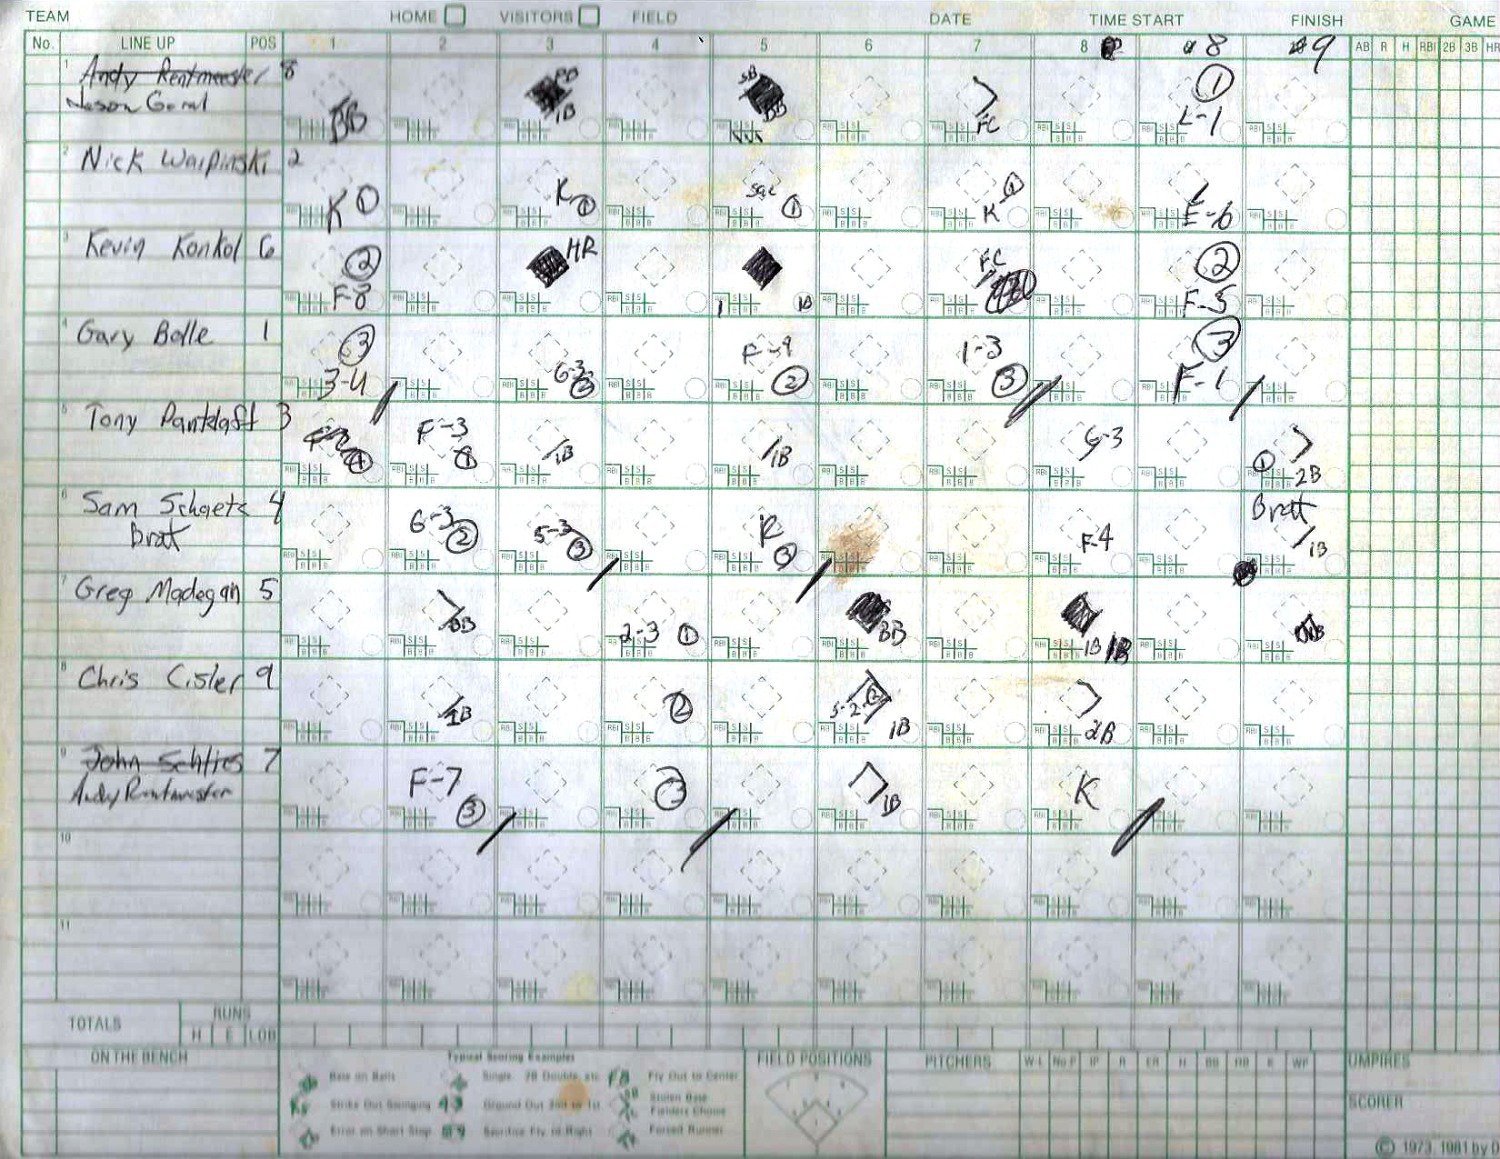 TEAM HOME VISITORS FIELD DATE TIME START FINISH GAME
No. LINE UP POS 1 2 3 4 5 6 7 8 8 #9 AB R H RBI 2B 3B HR
1 Andy Rentmeester 8
Jason BB 1B SB BB FC L-1 1
2 Nick Warpinski 2
K 1 K 1 sac 1 K 1 E-6
3 Kevin Konkol 6
2 F-8 HR 1 1B FC 2 F-5
4 Gary Bolle 1
3 3-4 6-3 F-9 2 1-3 3 3 F-1
5 Tony 3
F-3 1 1B 1B 6-3 1 2B
6 Sam Schaetz 4 Brat
Brat 6-3 2 5-3 3 K 3 F-4 1B
7 Greg Madegan 5
BB 2-3 1 BB 1B 1B
8 Chris Cisler 9
1B 2 5-2 1B 2B
9 John Schlies 7
Andy Rentmeester F-7 3 3 1B K
10
11
TOTALS RUNS
H E LOB
ON THE BENCH Typical Scoring Examples FIELD POSITIONS PITCHERS W-L No.P IP R ER H BB HB K WP UMPIRES
Base on Balls Single, 2B Double, etc. F8 Fly Out to Center
Strike Out Swinging 4-3 Ground Out 2nd to 1st Stolen Base
Fielders Choice SCORER
Error on Short Stop Sacrifice Fly to Right Forced Runner
© 1973, 1981 by D